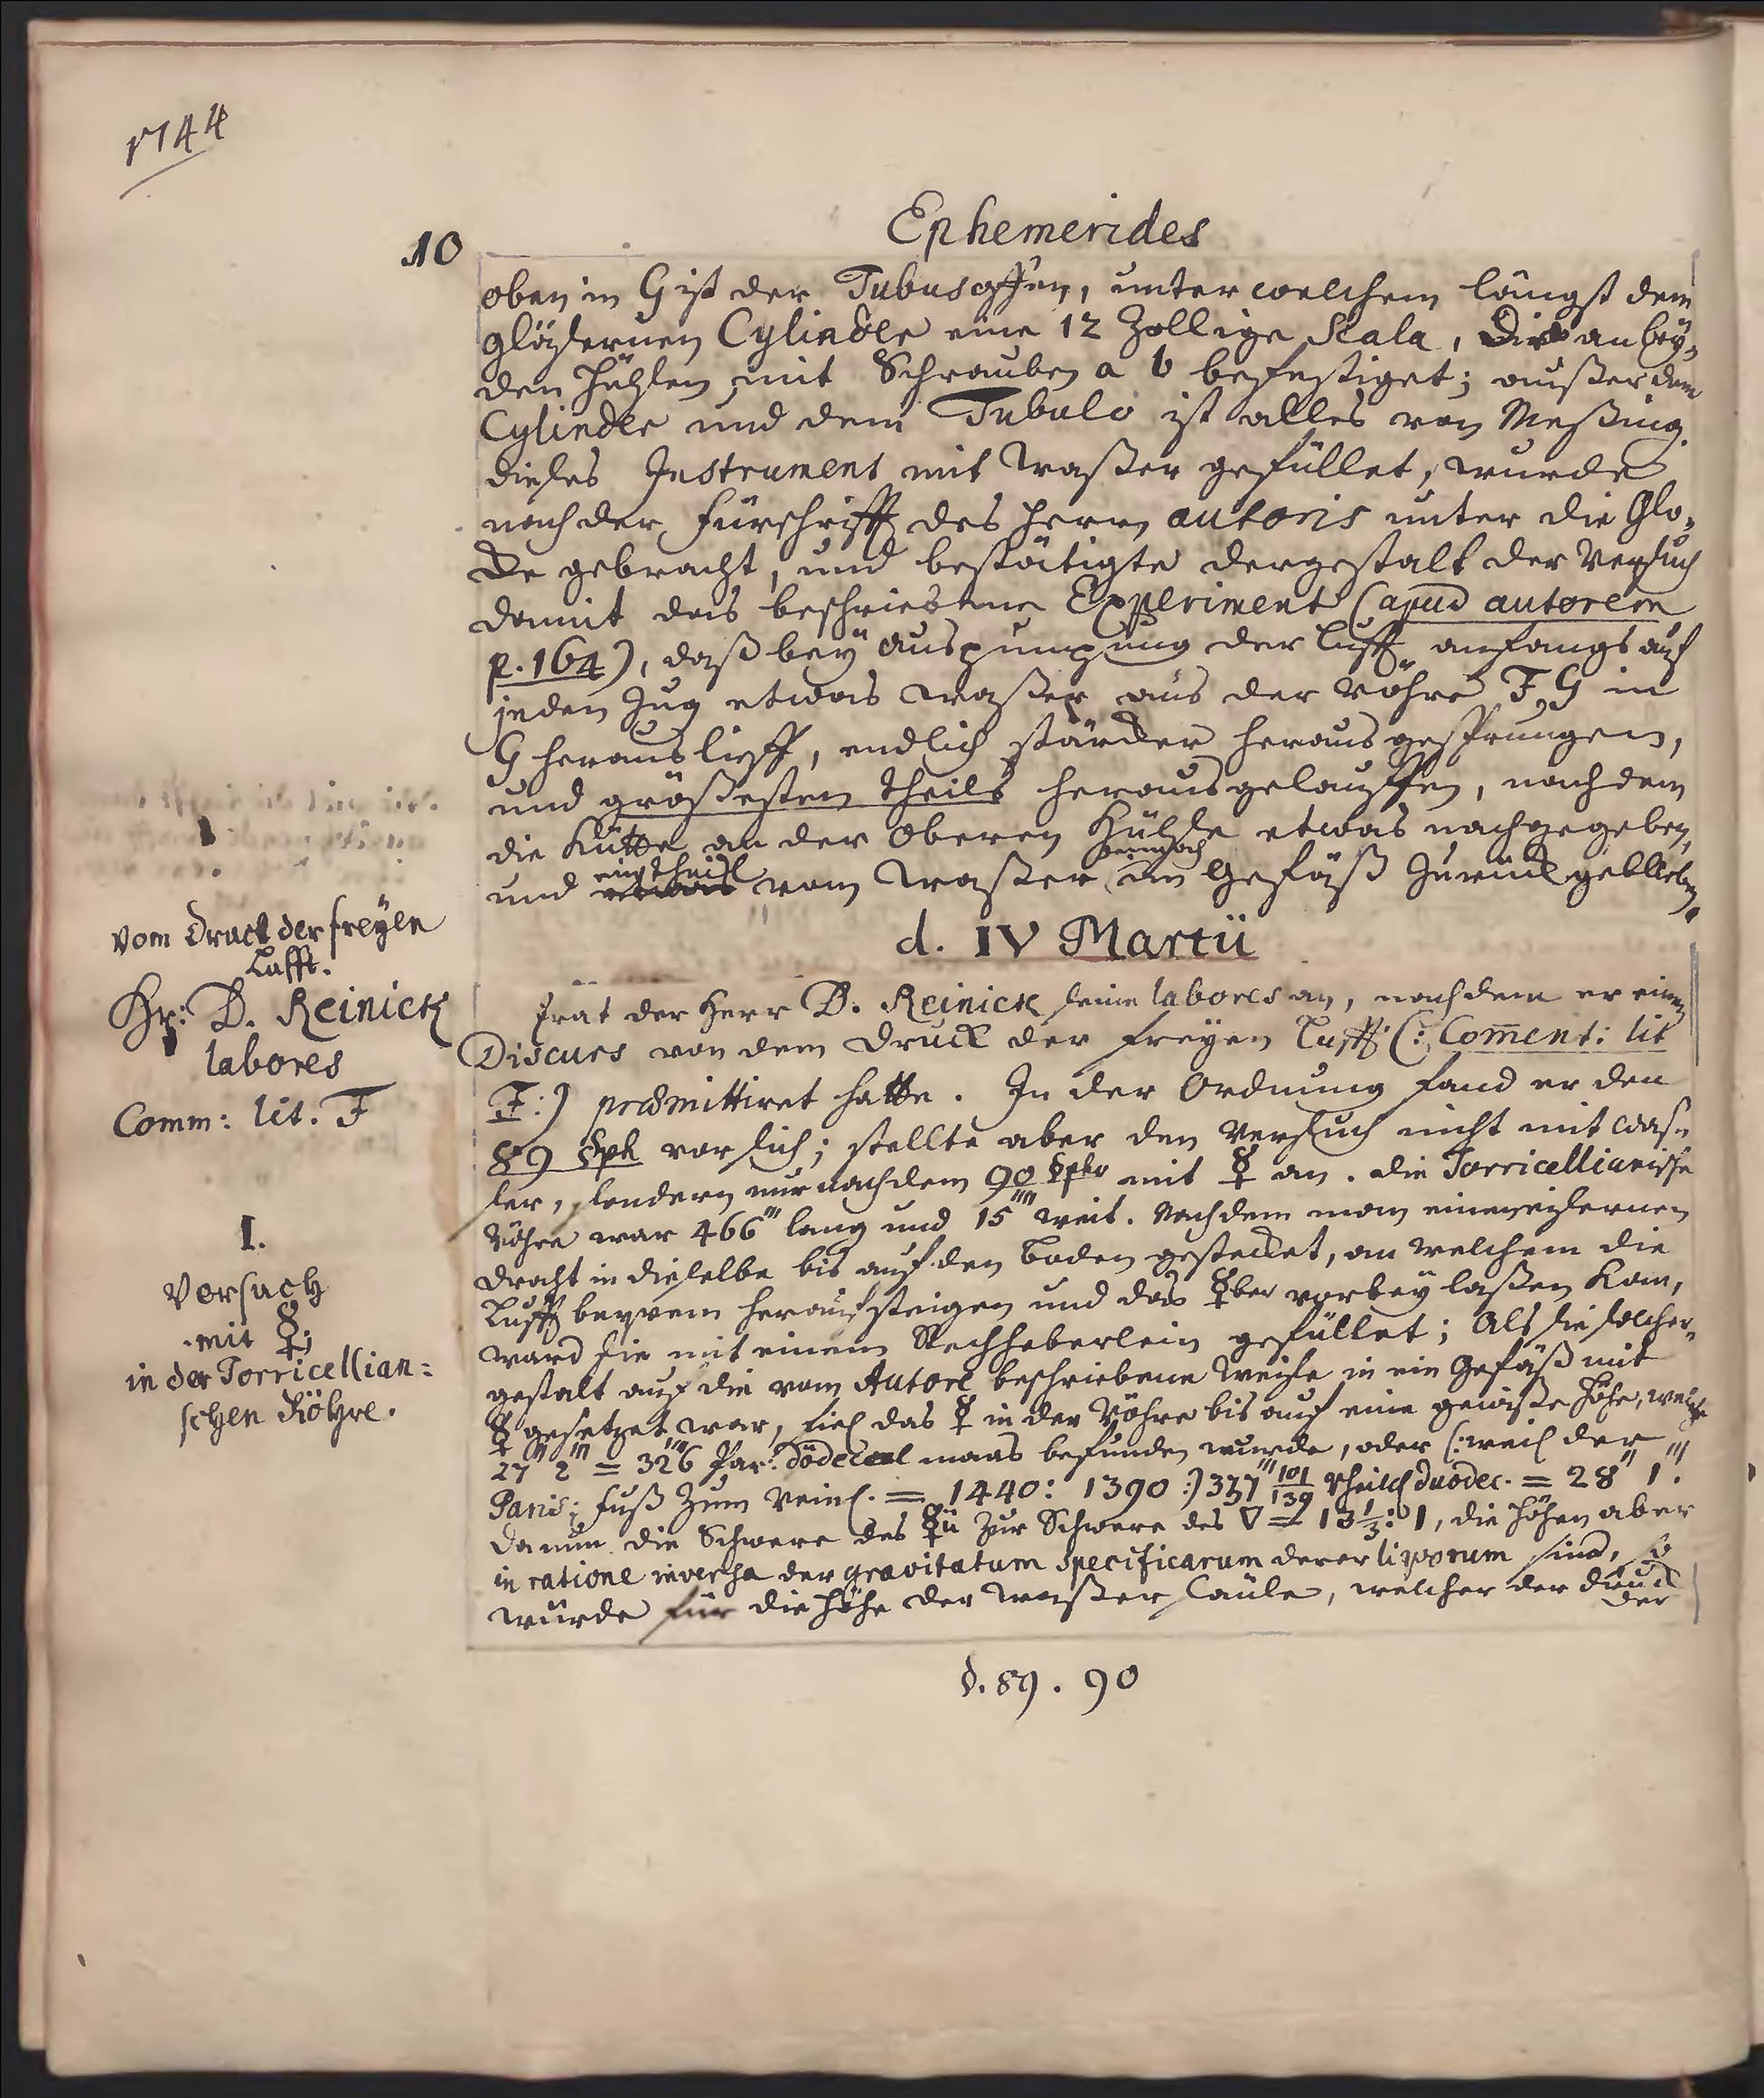 1744
10
Ephemerides
oben in G ist der Tubus offen, unter welchem längst dem
gläsernen Cylinder eine 12 Zollige Scala, die an bey-
den Hülsen mit Schrauben a b befestiget; außer dem
Cylinder und dem Tubulo ist alles von Meßing.
dieses Instrument mit Waßer gefüllet, wurde
nach der Fürschrifft des Herrn autoris unter die Glo-
cke gebracht, und bestätigte dergestalt der Versuch
damit das beschriebene Experiment (apud autorem
p. 164), daß bey auspumpung der Lufft anfangs auf
jeden Zug etwas Waßer aus der Röhre F G in
G heraus lieff, endlich stärcker heraus gesprungen,
und größesten theils heraus gelauffen, nachdem
die Kütte an der Oberen Hülse etwas nachgegeben,
und ein theil vom Waßer dennoch im Gefäß zurück geblieben.
d. IV Martii
Vom Druck der freyen
Lufft.
Hr: D. Reinick
labores
Comm: lit. F
trat der Herr D. Reinick seine labores an, nachdem er einen
Discurs von dem Druck der freyen Lufft (: Com̅ent: lit
F:) præmittiret hatte. In der Ordnung fand er den
89 §ph vor sich; stellte aber den Versuch nicht mit Waß-
ser, sondern nur nach dem 90 §pho mit ☿ an. die Torricellianische
Röhre war 466''' lang und 15''' weit. Nachdem man einen eisernen
Dracht in dieselbe bis auf den Boden gestecket, an welchem die
Lufft bequem herauf steigen und das ☿ber vorbey laßen kan,
ward sie mit einem Stechheberlein gefüllet; Als sie solcher-
gestalt auf die vom Autore beschriebene Weise in ein Gefäß mit
☿ gesetzet war, fiel das ☿ in der Röhre bis auf eine gewiße Höhe, welche
27'' 2''' = 326''' Par: dodecal maas befunden wurde, oder (: weil der
Paris: Fuß zum Reinl. = 1440: 1390 :) 337''' 101/139 Rheinl duodec. = 28'' 1'''.
Da nun die Schwere des ☿ii zur Schwere des ▽ = 13 1/3: 1, die Höhen aber
in ratione inversa der gravitatum specificarum derer liqvorum sind, so
würde für die Höhe der Waßer Säule, welcher der Druck
der
I.
Versuch
mit ☿;
in der Torricellian=
schen Röhre.
§. 89. 90